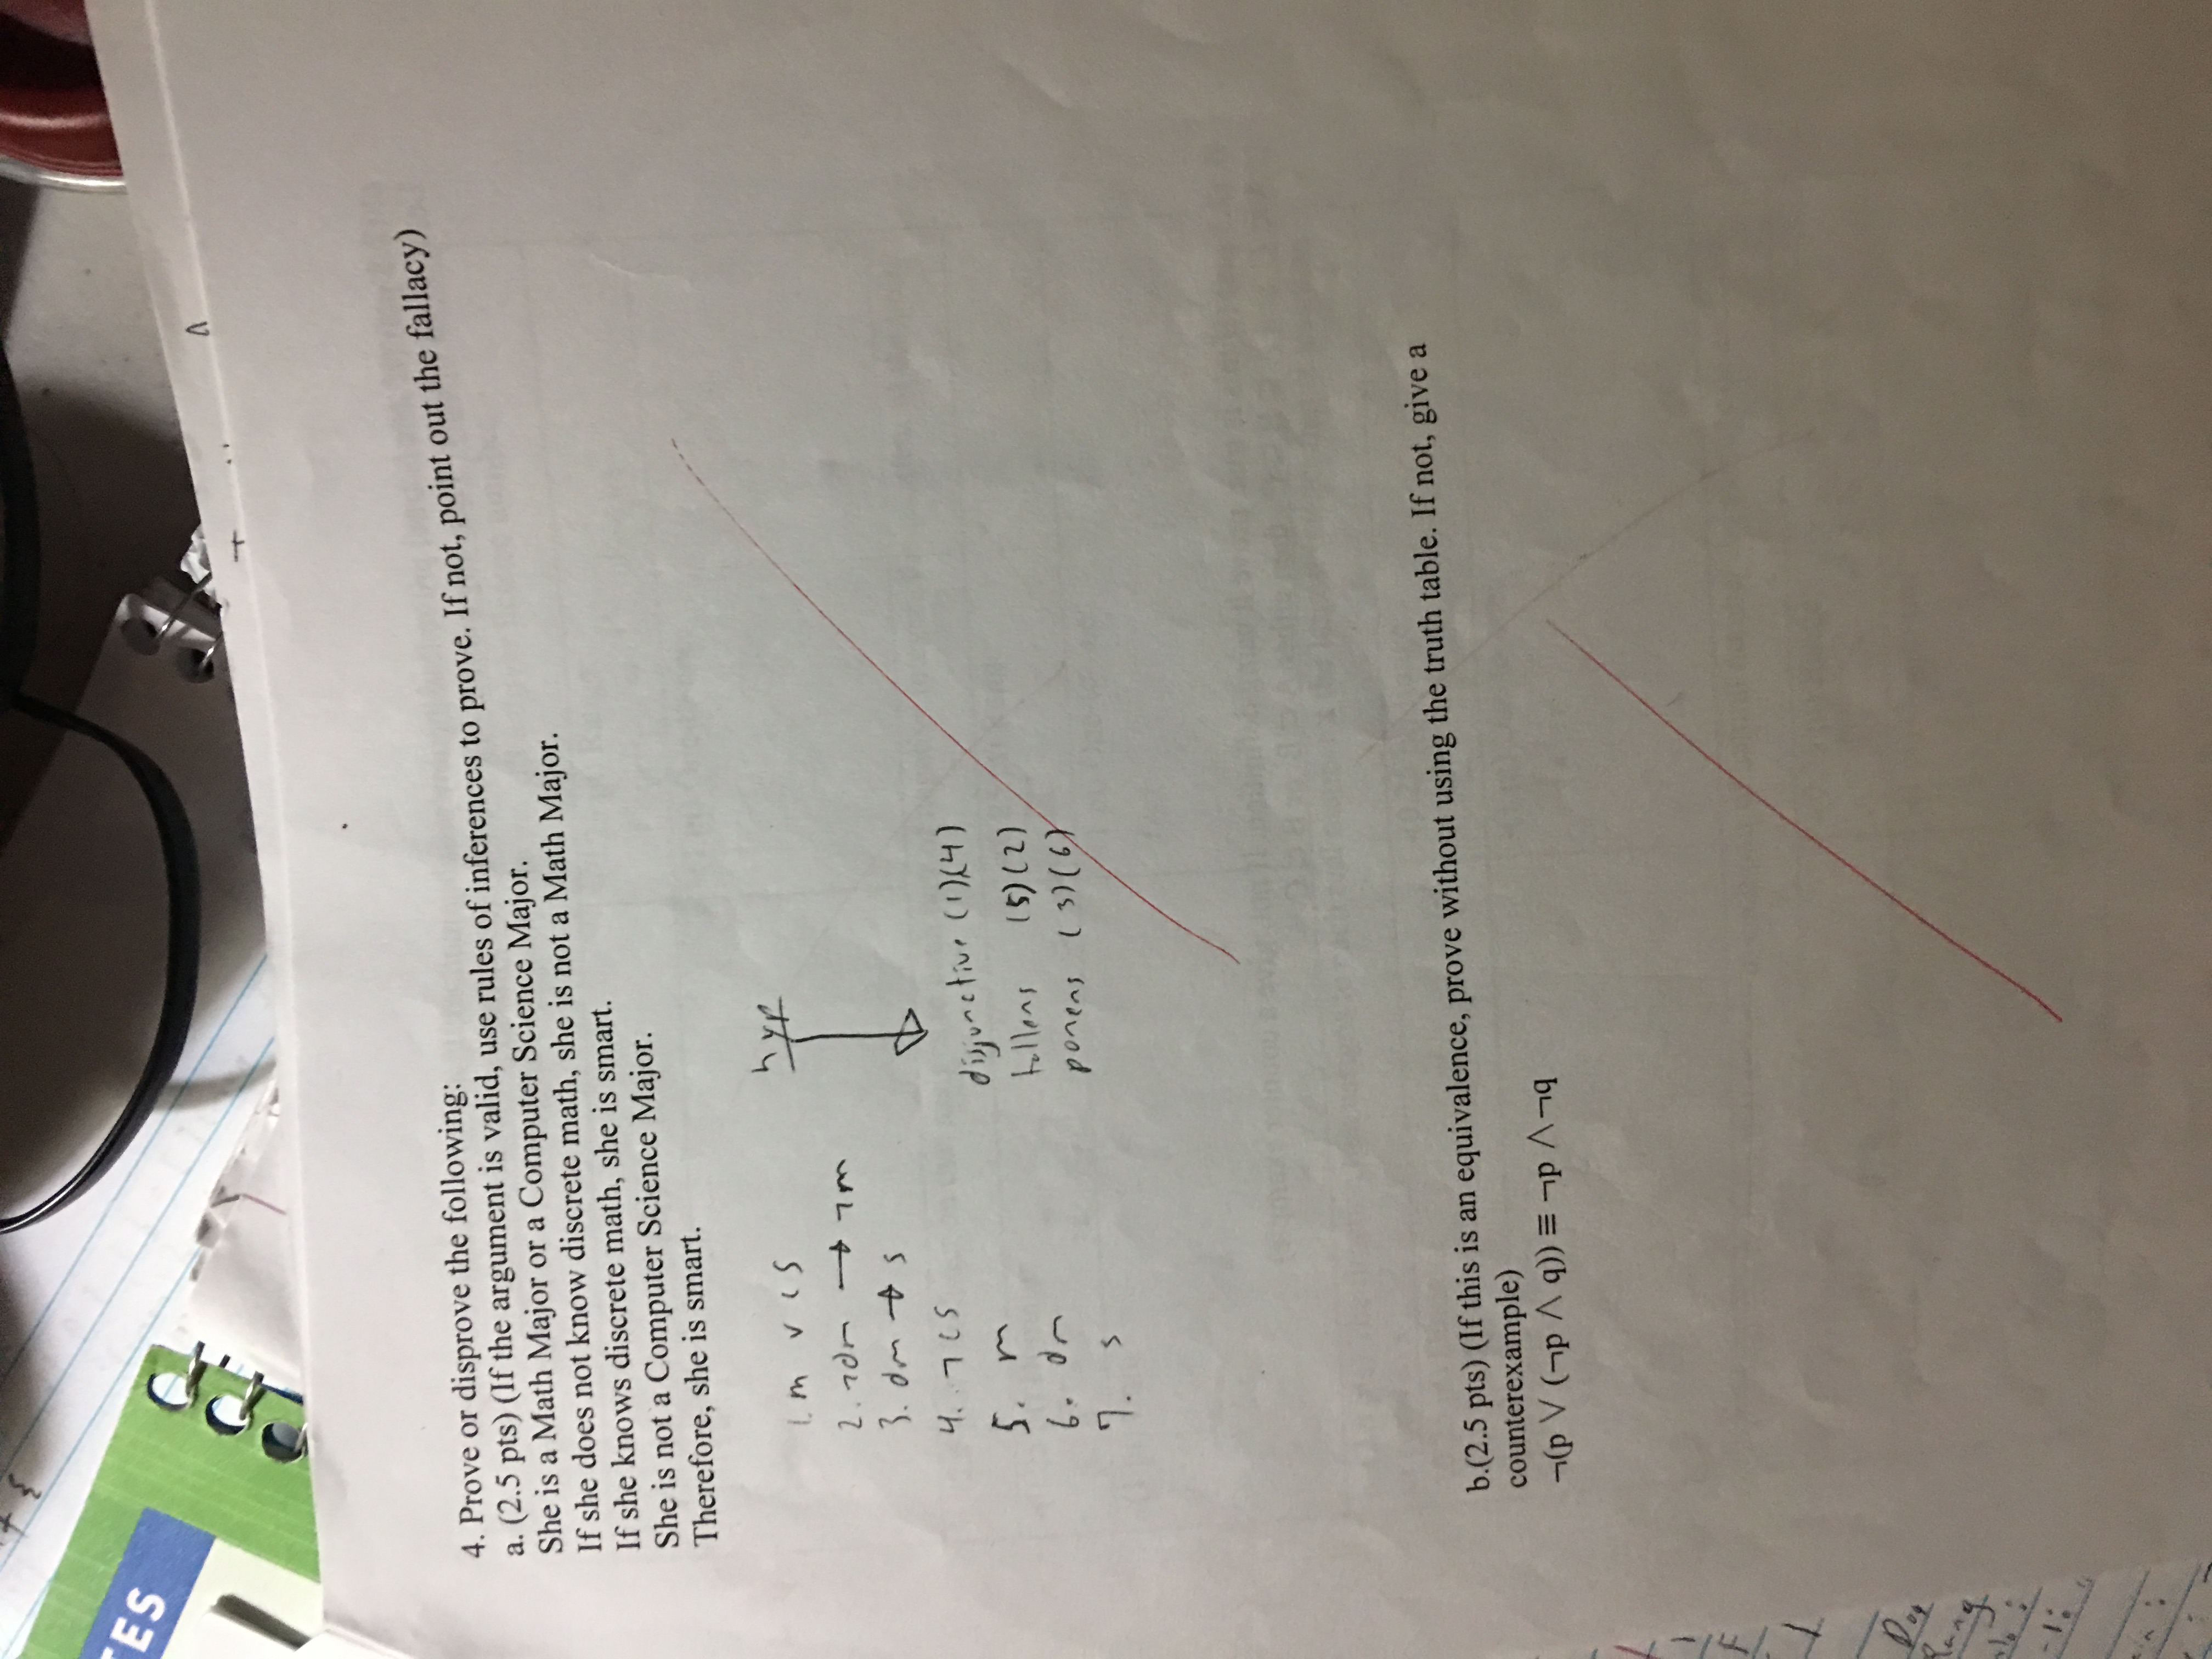 TES
4. Prove or disprove the following:
a. (2.5 pts) (If the argument is valid, use rules of inferences to prove. If not, point out the fallacy)
She is a Math Major or a Computer Science Major.
If she does not know discrete math, she is not a Math Major.
If she knows discrete math, she is smart.
She is not a Computer Science Major.
Therefore, she is smart.
1. m ∨ cs hyp
2. ¬dm → ¬m
3. dm → s
4. ¬cs
5. m disjunctive (1)(4)
6. dm tollens (5)(2)
7. s ponens (3)(6)
b.(2.5 pts) (If this is an equivalence, prove without using the truth table. If not, give a
counterexample)
¬(p ∨ (¬p ∧ q)) ≡ ¬p ∧¬q
Dog
Rang